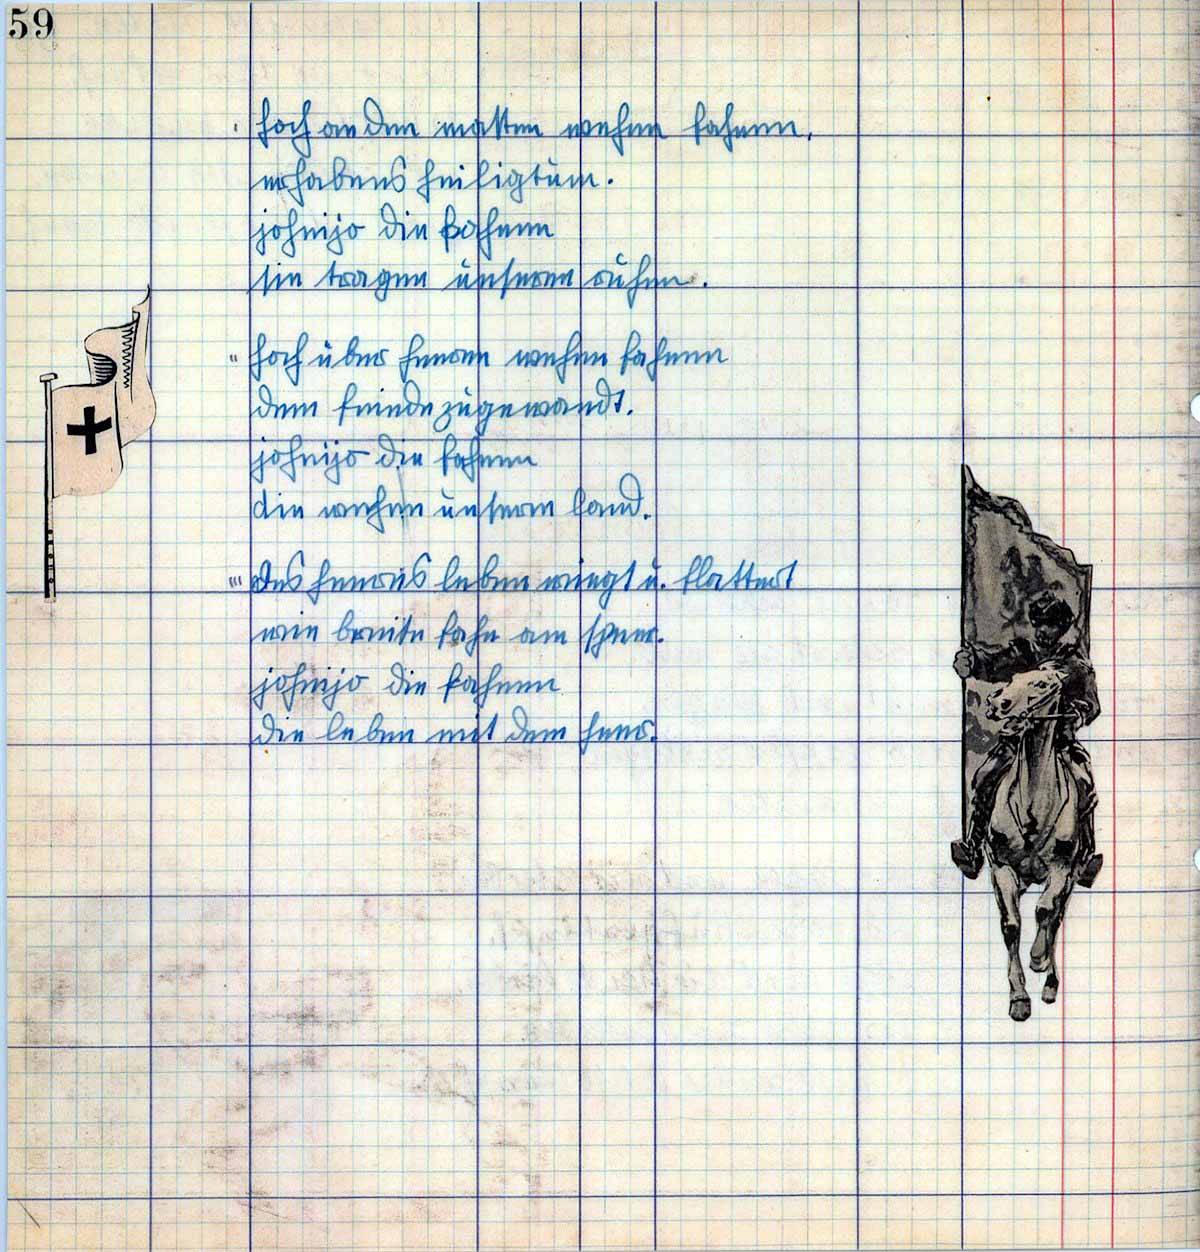 59
' hoch an den masten wehen fahnen,
erhabenes heiligtum.
joheijo die fahnen
sie tragen unseren ruhm.
" hoch über heeren wehen fahnen
dem feinde zugewandt.
joheijo die fahnen
die wehen unserm land.
"' des heeres leben wiegt u. flattert
wie breite fahn am speer.
joheijo die fahnen
die leben mit dem heer.